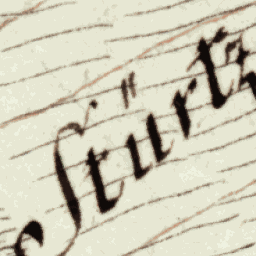 ſtürtz